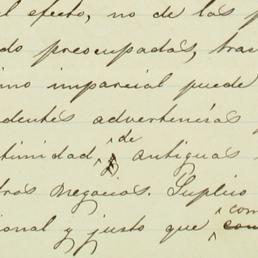 al efecto, no de las p
do preocupadas, tras
imo imparcial puede
dentes advertencias
timidad, de antiguas
tros negocios. Suplico
ional y justo que com